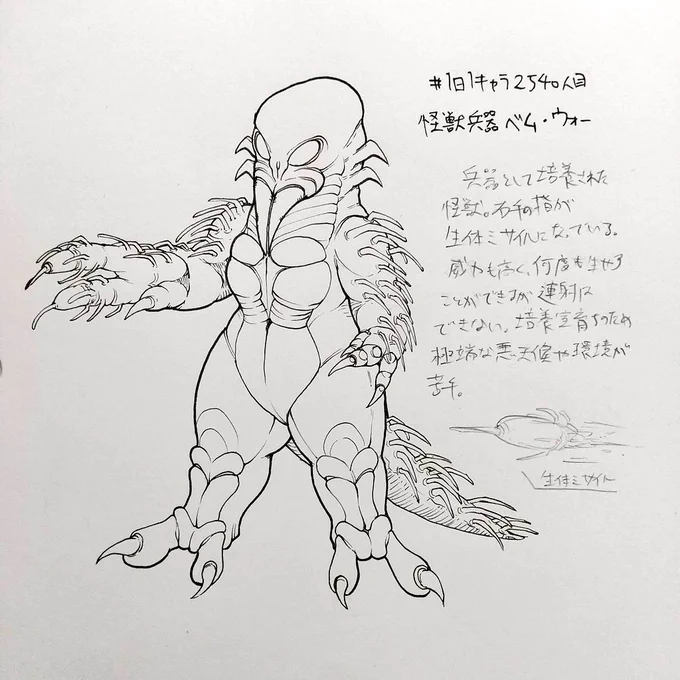 #1日1キャラ2540人目
怪獣兵器ベム・ウォー
兵器として培養された
怪獣。右手の指が
生体ミサイルになっている。
威力も高く、何度も生やす
ことができるが連射は
できない。培養室育ちのため
極端な悪天候や環境が
苦手。
生体ミサイル